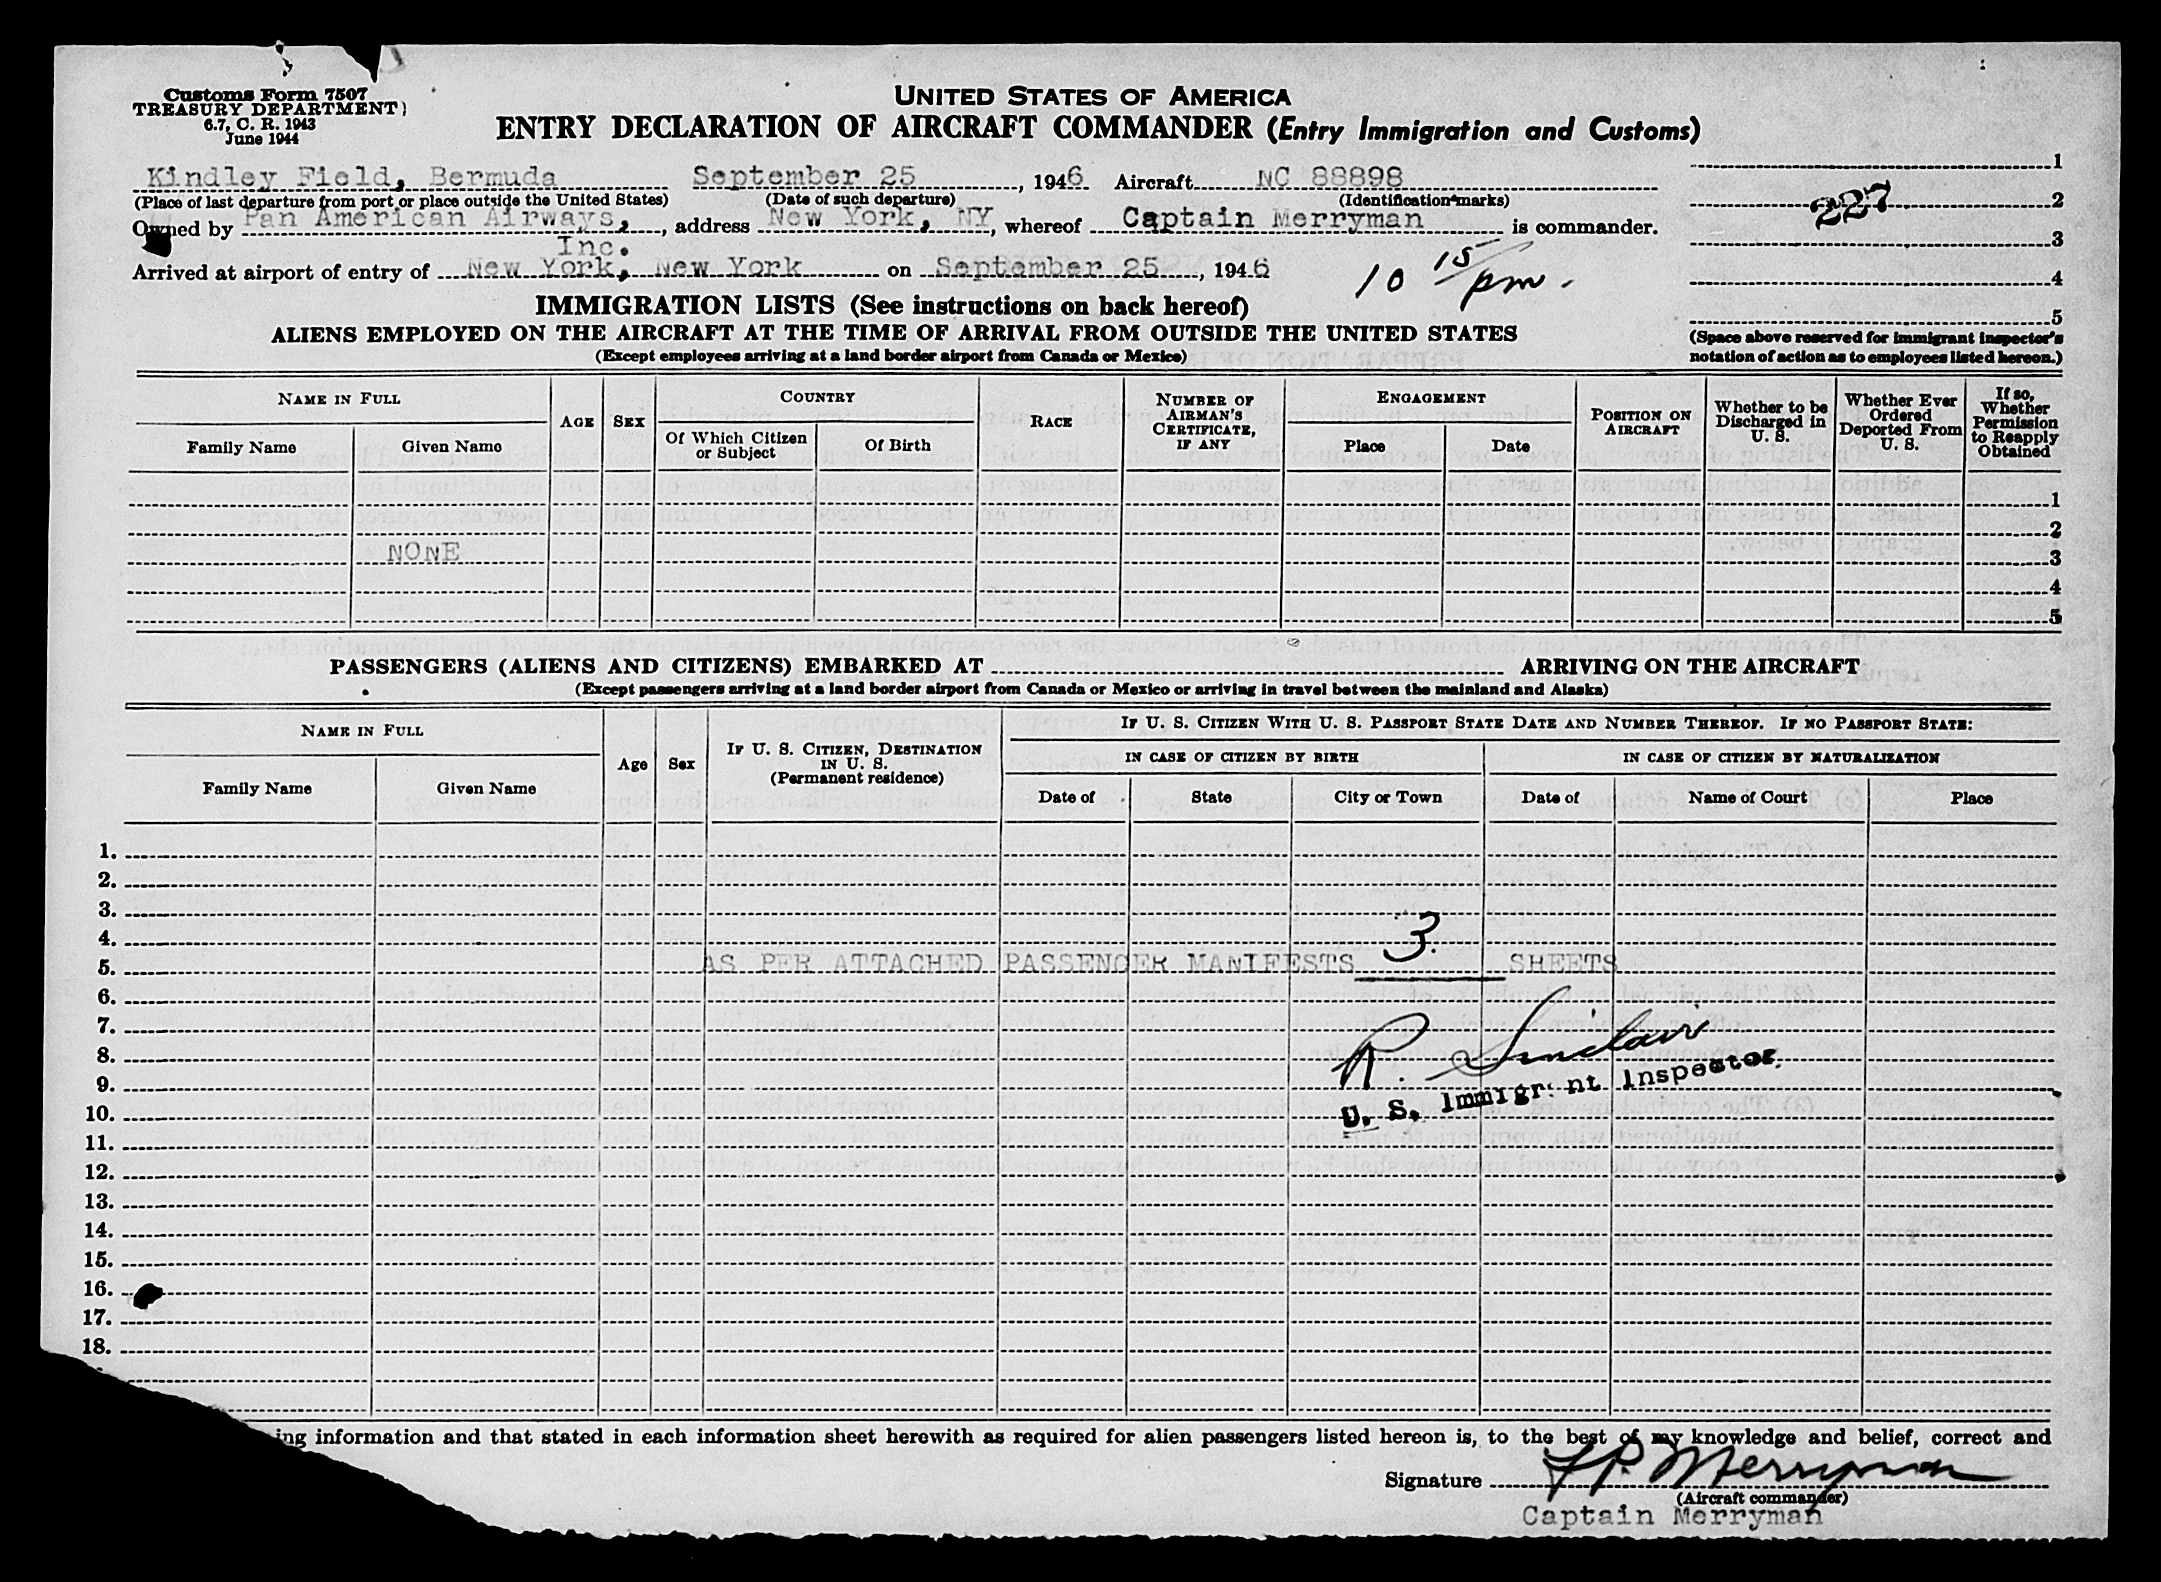 Customs Form 7507
TREASURY DEPARTMENT)
6.7, C. R. 1943
June 1944
UNITED STATES OF AMERICA
ENTRY DECLARATION OF AIRCRAFT COMMANDER (Entry Immigration and Customs)
Kindley Field, Bermuda September 25, 1946 Aircraft NC 88898
(Place of last departure from port or place outside the United States) (Date of such departure) (Identification marks)
Owned by Pan American Airways, address New York, NY, whereof Captain Merryman is commander.
Inc.
Arrived at airport of entry of New York, New York on September 25, 1946
10 15 pm.
1
227
2
3
4
5
(Space above reserved for immigrant inspector's
notation of action as to employees listed hereon.)
IMMIGRATION LISTS (See instructions on back hereof)
ALIENS EMPLOYED ON THE AIRCRAFT AT THE TIME OF ARRIVAL FROM OUTSIDE THE UNITED STATES
(Except employees arriving at a land border airport from Canada or Mexico)
NAME IN FULL
Family Name Given Name
AGE
SEX
COUNTRY
Of Which Citizen or Subject
Of Birth
RACE
NUMBER OF AIRMAN'S CERTIFICATE, IF ANY
ENGAGEMENT
Place Date
POSITION ON AIRCRAFT
Whether to be Discharged in U. S.
Whether Ever Ordered Deported From U. S.
If so, Whether Permission to Reapply Obtained
1
2
NONE 3
4
5
PASSENGERS (ALIENS AND CITIZENS) EMBARKED AT ARRIVING ON THE AIRCRAFT
(Except passengers arriving at a land border airport from Canada or Mexico or arriving in travel between the mainland and Alaska)
NAME IN FULL
Family Name Given Name
Age
Sex
IF U. S. CITIZEN, DESTINATION IN U. S.
(Permanent residence)
IF U. S. CITIZEN WITH U. S. PASSPORT STATE DATE AND NUMBER THEREOF. IF NO PASSPORT STATE:
IN CASE OF CITIZEN BY BIRTH IN CASE OF CITIZEN BY NATURALIZATION
Date of State City or Town Date of Name of Court Place
1.
2.
3.
4.
5. AS PER ATTACHED PASSENGER MANIFESTS 3. SHEETS
6.
7.
R. Sinclair
8.
9.
U. S. Immigrant Inspector.
10.
11.
12.
13.
14.
15.
16.
17.
18.
ing information and that stated in each information sheet herewith as required for alien passengers listed hereon is, to the best of my knowledge and belief, correct and
Signature F P. Merryman
(Aircraft commander)
Captain Merryman